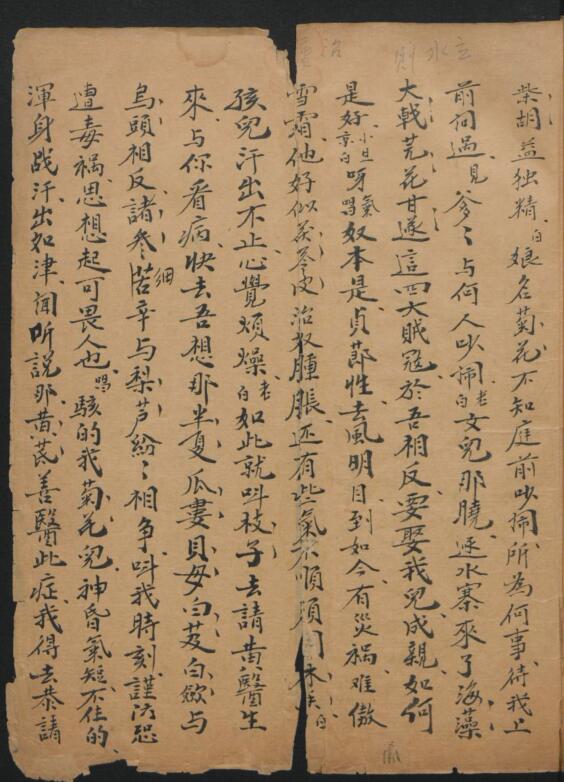 柴胡益独精白娘名菊花不知庭前吵闹所為何事待我上
前问过見爹〻与何人吵闹老白女兒那曉逆水寨來了海藻
大戟芫花甘遂這四大贼冠於吾相反要娶我兒成親如何
是好小旦京白呀氣唱奴本是貞莭性去風明目到如今有災祸难傲
雪霜他好似茯苓皮治奴腫脹还有些氣不順頭
孩兒汗出不止心覺煩燥老白如此就呌枝子去請黄醫生
來与你看病快去吾想那半夏瓜蔞貝母白芨白斂与
烏頭相反諸參細苦辛与梨芦紛〻相争呌我時刻謹防恐
遭毒祸思想起可畏人也唱駭的我菊花兒神昏氣短不住的
渾身战汗出如津闻听說那黄芪善醫此症我得去恭請